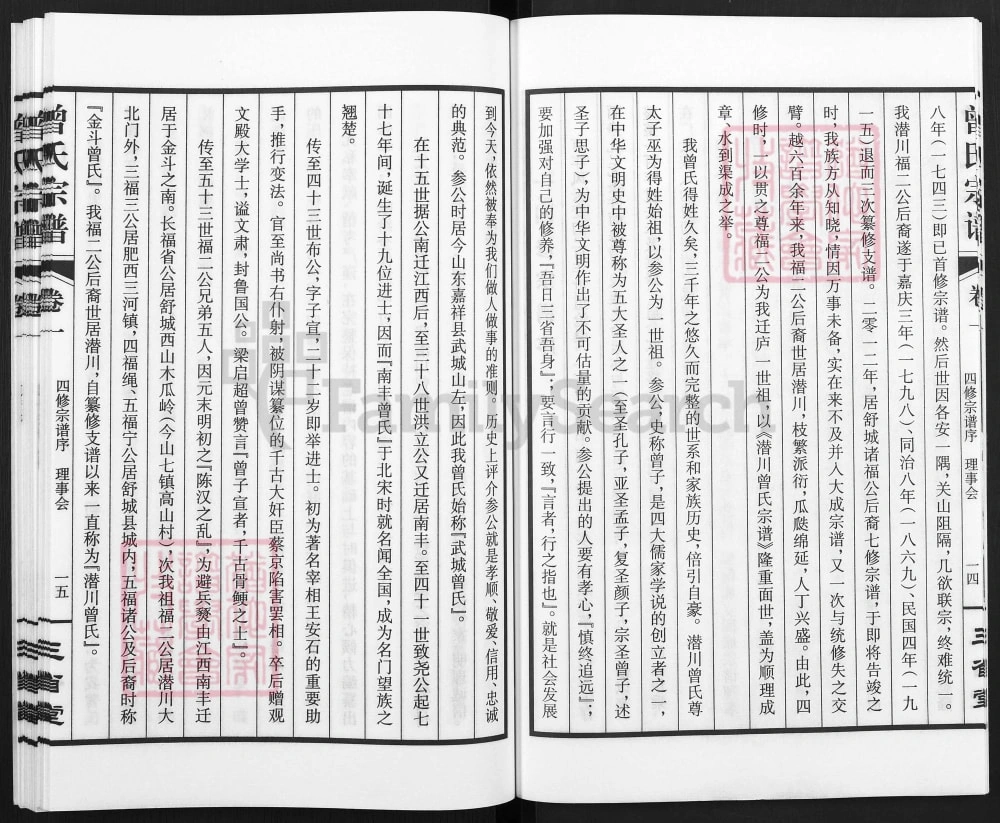 曾氏宗谱
卷一
四修宗谱序
理事会
一四
三省堂
八年（一七四三）即已首修宗谱。然后世因各安一隅，关山阻隔，几欲联宗，终难统一。
我潜川福二公后裔遂于嘉庆三年（一七九八）、同治八年（一八六九）、民国四年（一九
一五）退而三次纂修支谱。二零一二年，居舒城诸福公后裔七修宗谱，于即将告竣之
时，我族方从知晓，情因万事未备，实在来不及并入大成宗谱，又一次与统修失之交
臂。越六百余年来，我福二公后裔世居潜川，枝繁派衍，瓜瓞绵延，人丁兴盛。由此，四
修时，一以贯之尊福二公为我迁庐一世祖，以《潜川曾氏宗谱》隆重面世，盖为顺理成
章、水到渠成之举。
我曾氏得姓久矣，三千年之悠久而完整的世系和家族历史，倍引自豪。潜川曾氏尊
太子巫为得姓始祖，以参公为一世祖。参公，史称曾子，是四大儒家学说的创立者之一，
在中华文明史中被尊称为五大圣人之一（至圣孔子，亚圣孟子，复圣颜子，宗圣曾子，述
圣子思子），为中华文明作出了不可估量的贡献。参公提出的人要有孝心，『慎终追远』；
要加强对自己的修养，『吾日三省吾身』；要言行一致，『言者，行之指也』。就是社会发展
到今天，依然被奉为我们做人做事的准则。历史上评介参公就是孝顺、敬爱、信用、忠诚
的典范。参公时居今山东嘉祥县武城山左，因此我曾氏始称『武城曾氏』。
在十五世据公南迁江西后，至三十八世洪立公又迁居南丰。至四十一世致尧公起七
十七年间，诞生了十九位进士，因而『南丰曾氏』于北宋时就名闻全国，成为名门望族之
翘楚。
传至四十三世布公，字子宣，二十二岁即举进士。初为著名宰相王安石的重要助
手，推行变法。官至尚书右仆射，被阴谋纂位的千古大奸臣蔡京陷害罢相。卒后赠观
文殿大学士，谥文肃，封鲁国公。梁启超曾赞言『曾子宣者，千古骨鲠之士』。
传至五十三世福二公兄弟五人，因元末明初之『陈汉之乱』，为避兵燹由江西南丰迁
居于金斗之南。长福省公居舒城西山木瓜岭（今山七镇高山村），次我祖福二公居潜川大
北门外，三福三公居肥西三河镇，四福绳、五福宁公居舒城县城内，五福诸公及后裔时称
『金斗曾氏』。我福二公后裔世居潜川，自纂修支谱以来一直称为『潜川曾氏』。
曾氏宗谱
卷一
四修宗谱序
理事会
一五
三省堂
FamilySearch